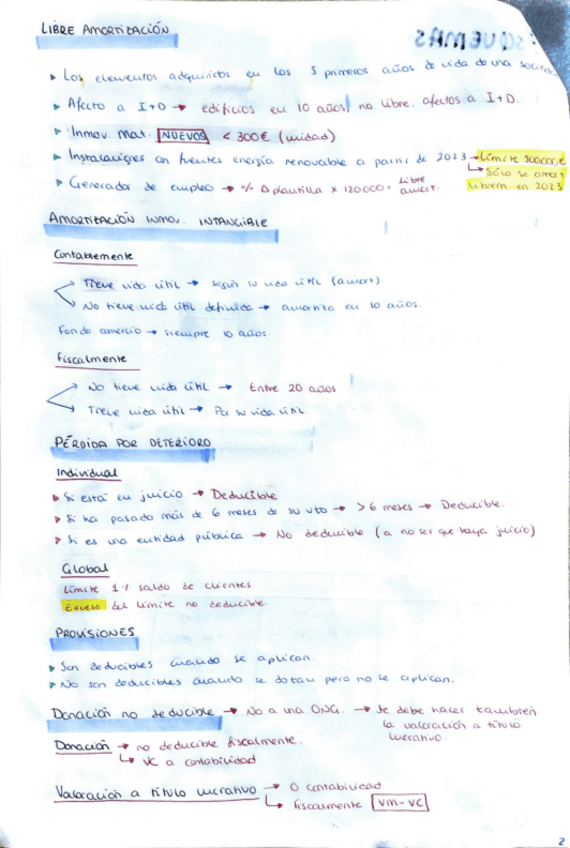 LIBRE AMORTIZACIÓN
ESQUEMAS
▸ Los elementos adquiridos en los 5 primeros años de vida de una
▸ Afecto a I+D → edificios en 10 años, no libre. afectos a I+D.
▸ Inmov. Mat. NUEVOS < 300€ (unidad)
▸ Instalaciones con fuentes energía renovable a partir de 2023 → Límite 500000€
↳ Sólo se amort
librem. en 2023
▸ Generador de empleo → % Δ plantilla x 120000 = Libre amort.
AMORTIZACIÓN INMOV. INTANGIBLE
Contablemente
Tiene vida útil → según su vida útil (amort)
No tiene vida útil definida → amortiza en 10 años.
Fondo comercio → siempre 10 años
Fiscalmente
No tiene vida útil → Entre 20 años
Tiene vida útil → Por su vida útil.
PÉRDIDA POR DETERIORO
Individual
▸ Si está en juicio → Deducible
▸ Si ha pasado más de 6 meses de su vto → > 6 meses → Deducible.
▸ Si es una entidad pública → No deducible (a no ser que haya juicio)
Global
Límite 1% saldo de clientes
Exceso del límite no deducible
PROVISIONES
▸ Son deducibles cuando se aplican.
▸ No son deducibles cuando se dotan pero no se aplican.
Donación no deducible → No a una ONG. → Se debe hacer también
la valoración a título
lucrativo.
Donación → no deducible fiscalmente.
↳ VC a contabilidad
Valoración a título lucrativo → 0 contabilidad
↳ fiscalmente VM-VC
2